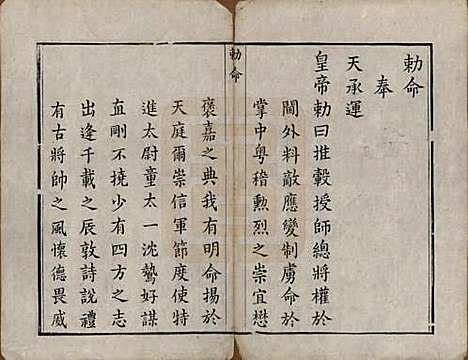 勅命
奉
天承運
皇帝勅曰推轂授師總將權於
閫外料敵應變制虜命於
掌中粤稽勲烈之崇宜懋
勅命
褒嘉之典我有明命揚於
天庭爾崇信軍節度使特
進太尉童太一沈鷙好謀
血剛不撓少有四方之志
出逢千載之辰敦詩說禮
有古將帥之風懷德畏威